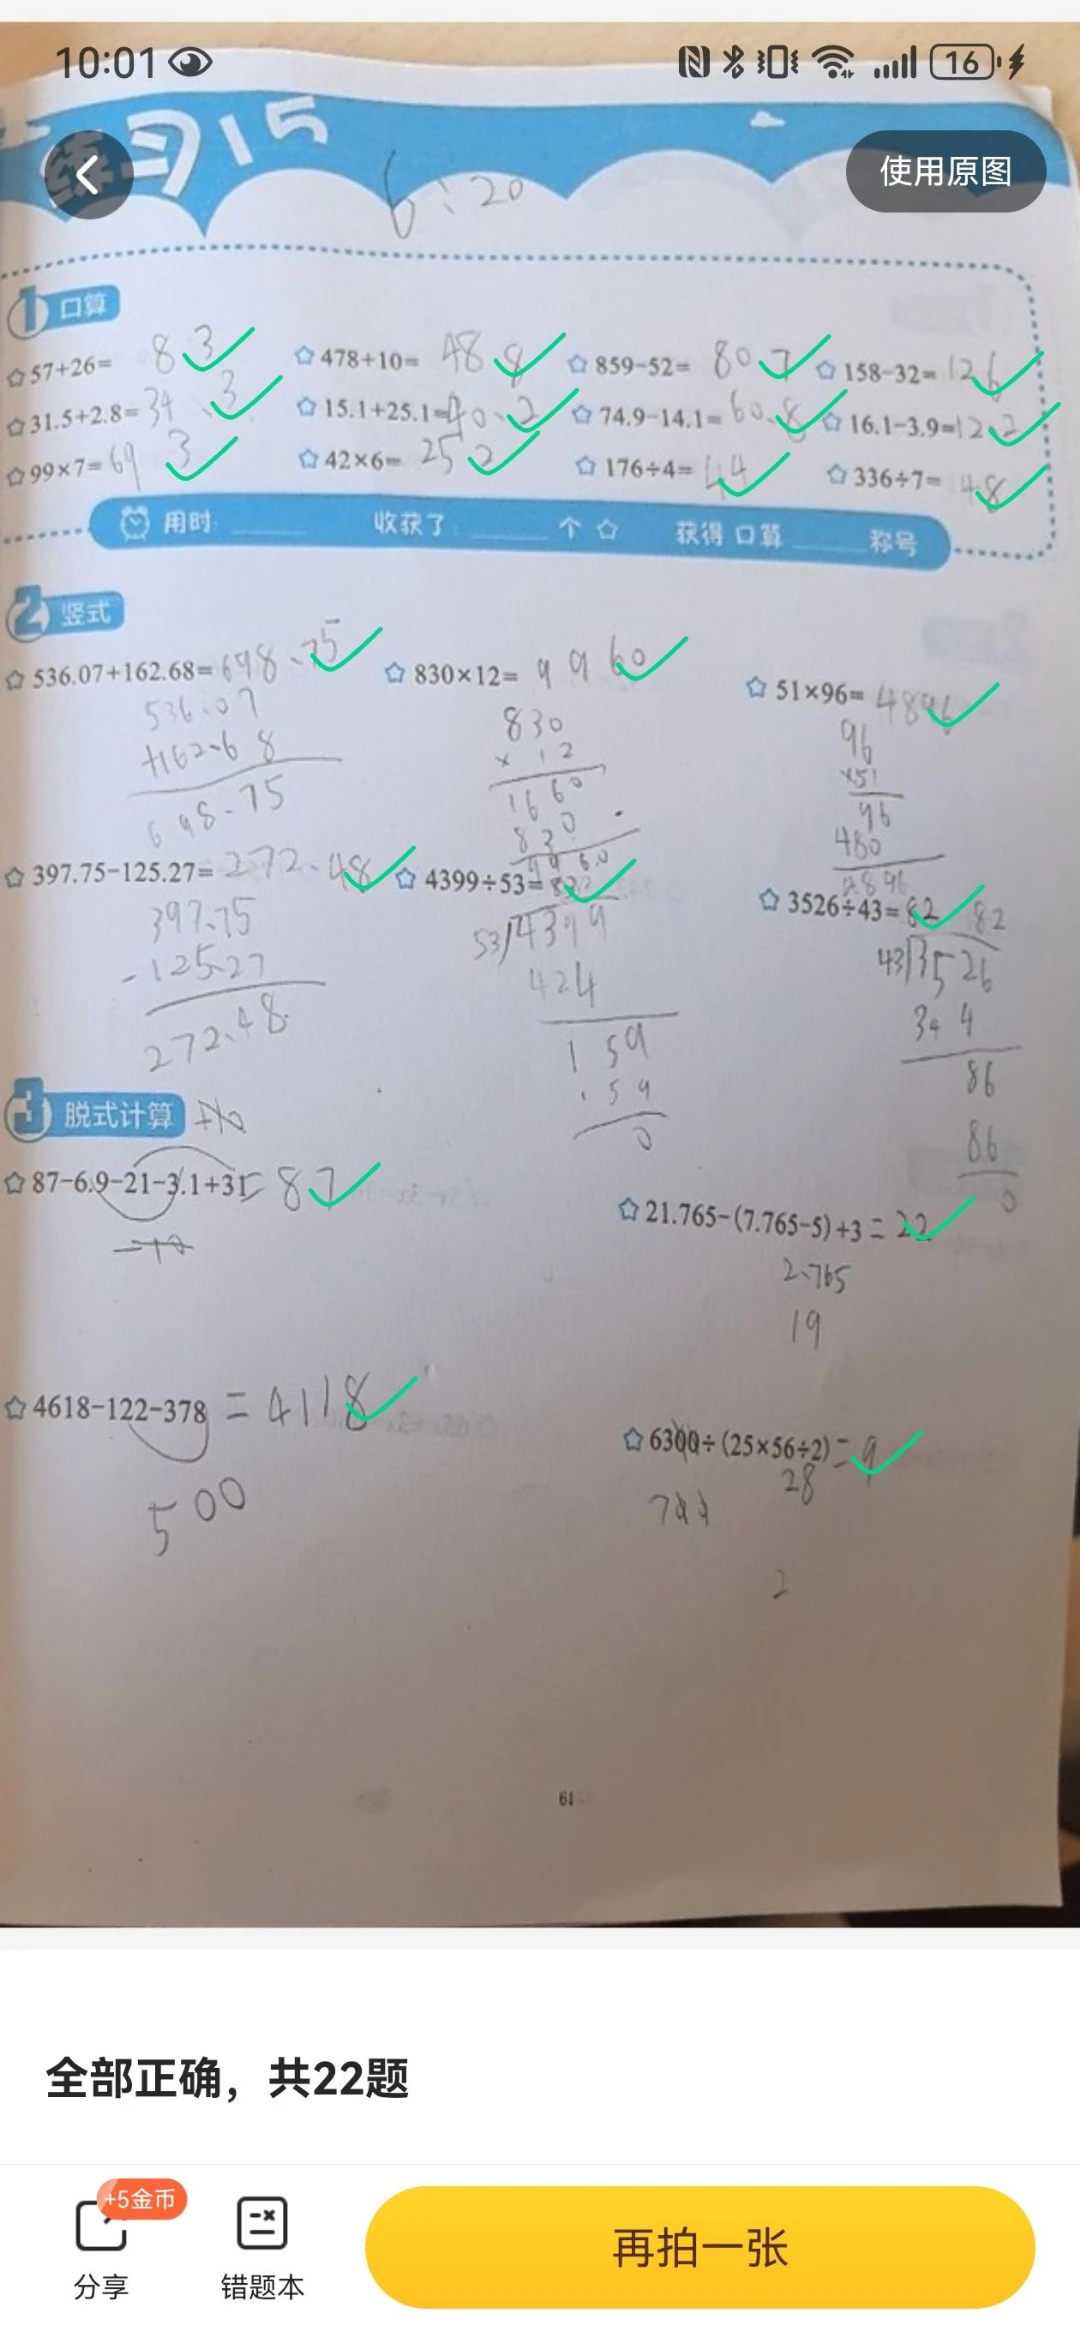 10:01 16
练习15
使用原图
6:20
1 口算
57+26= 83 478+10= 488 859-52= 807 158-32= 126
31.5+2.8= 34.3 15.1+25.1= 40.2 74.9-14.1= 60.8 16.1-3.9= 12.2
99×7= 693 42×6= 252 176÷4= 44 336÷7= 48
用时: 收获了 个 获得 口算 称号
2 竖式
536.07+162.68= 698.75 830×12= 9960 51×96= 4896
536.07 830 96
+162.68 ×12 ×51
698.75 1660 96
830 480
9960 4896
397.75-125.27= 272.48 4399÷53= 83 3526÷43= 82 82
397.75 53 4399 43 3526
-125.27 424 344
272.48 159 86
159 86
0 0
3 脱式计算
87-6.9-21-3.1+31= 87 21.765-(7.765-5)+3= 22
2.765
19
4618-122-378 = 4118 6300÷(25×56÷2)= 9
500 28
2
61
全部正确，共22题
+5金币
分享 错题本 再拍一张